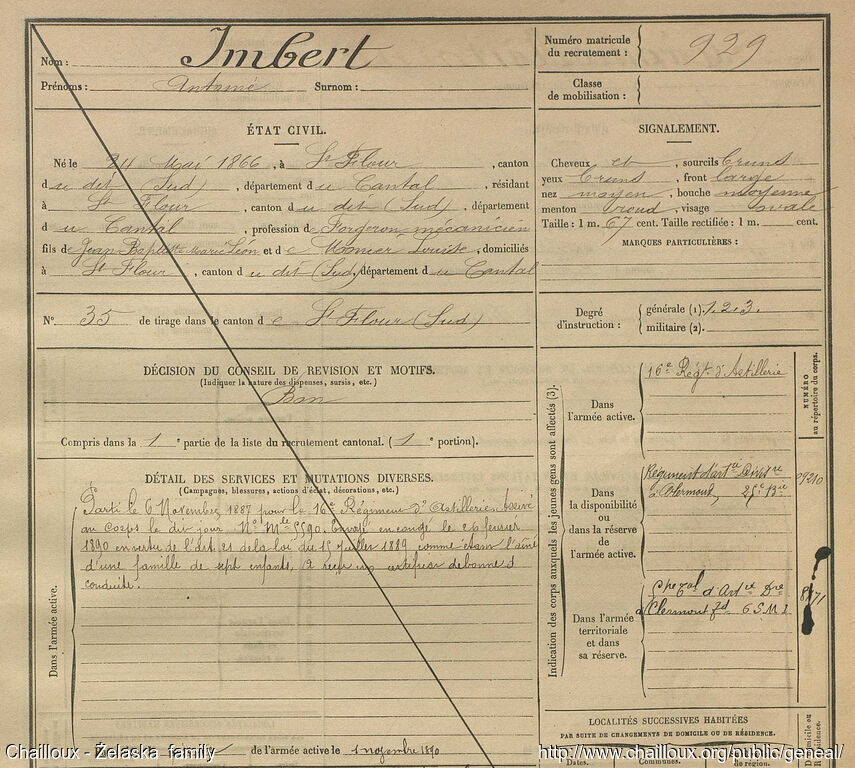 Nom : Imbert
Prénoms : Antoine Surnom :
Numéro matricule du recrutement : 929
Classe de mobilisation :
ÉTAT CIVIL.
Né le 24 Mai 1866, à St Flour, canton
du dit (Sud), département du Cantal, résidant
à St Flour, canton du dit (Sud), département
du Cantal, profession de Forgeron mécanicien
fils de Jean Baptiste Marie Léon et de Monier Louise, domiciliés
à St Flour, canton du dit (Sud), département du Cantal
N° 35 de tirage dans le canton de St Flour (Sud)
SIGNALEMENT.
Cheveux et, sourcils bruns
yeux bruns, front large
nez moyen, bouche moyenne
menton rond, visage ovale
Taille : 1 m. 67 cent. Taille rectifiée : 1 m. cent.
MARQUES PARTICULIÈRES :
Degré d'instruction : générale (1). 1.2.3.
militaire (2).
DÉCISION DU CONSEIL DE REVISION ET MOTIFS.
(Indiquer la nature des dispenses, sursis, etc.)
Bon
Compris dans la 1e partie de la liste du recrutement cantonal. (1e portion).
DÉTAIL DES SERVICES ET MUTATIONS DIVERSES.
(Campagnes, blessures, actions d'éclat, décorations, etc.)
Dans l'armée active.
Parti le 6 Novembre 1887 pour le 16e Régiment d'Artillerie. Arrivé
au corps le dit jour No Mle 5590. Envoyé en congé le 26 février
1890 en vertu de l'art. 21 de la loi du 15 Juillet 1889 comme étant l'aîné
d'une famille de sept enfants, a reçu un certificat de bonne
conduite.
de l'armée active le 1 novembre 1890
Indication des corps auxquels les jeunes gens sont affectés (3).
NUMÉRO au répertoire du corps.
Dans l'armée active.
16e Régt d'Artillerie
Dans la disponibilité ou dans la réserve de l'armée active.
Régiment d'artie
à Clermont, 25e Bie
Dans l'armée territoriale et dans sa réserve.
d'Art
à Clermont fd
LOCALITÉS SUCCESSIVES HABITÉES
PAR SUITE DE CHANGEMENTS DE DOMICILE OU DE RÉSIDENCE.
Dates. Communes. de région. Domicile ou Résidence.
Chailloux - Żelaska family
http://www.chailloux.org/public/geneal/